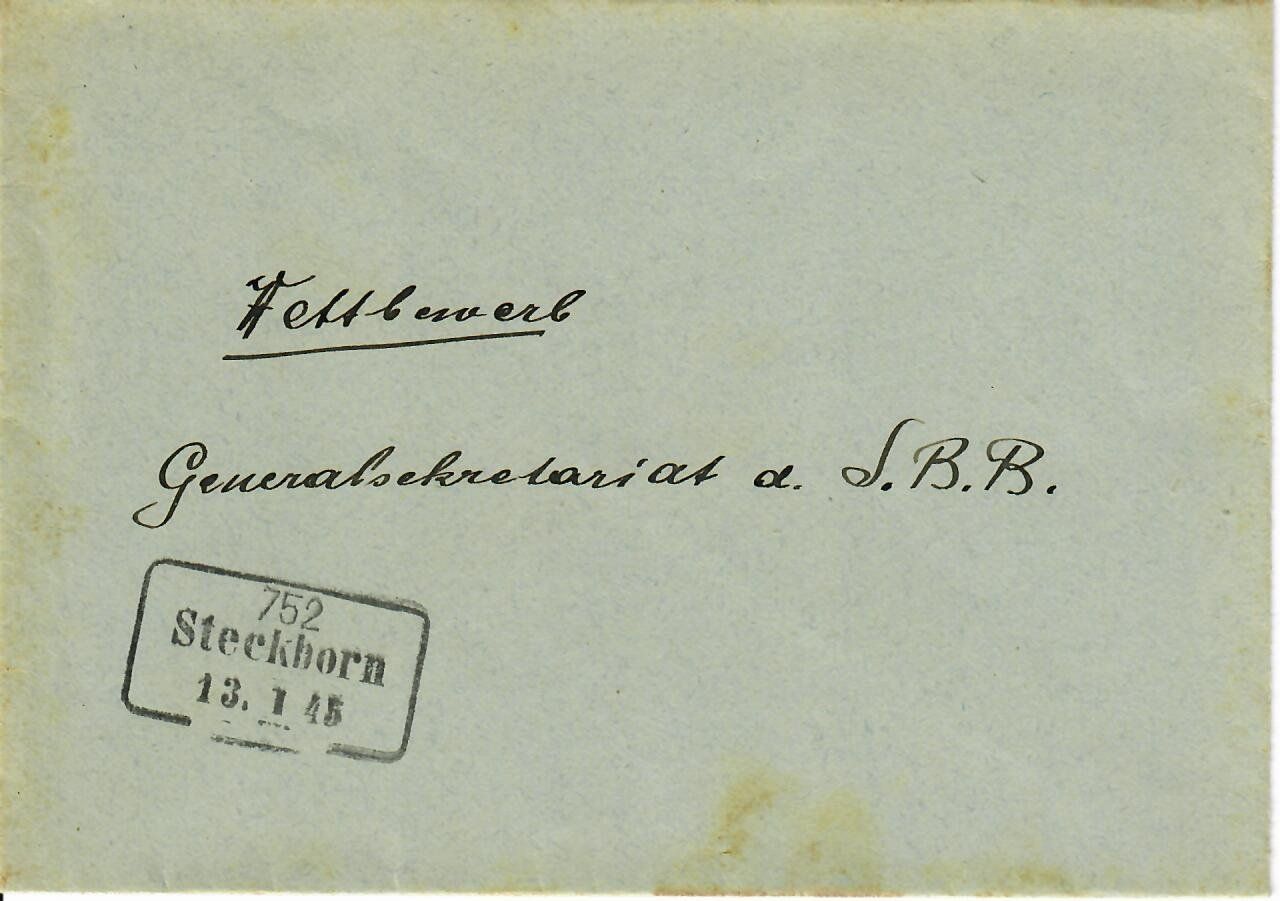 Wettbewerb
Generalsekretariat d. S.B.B.
752
Steckborn
13. I 45